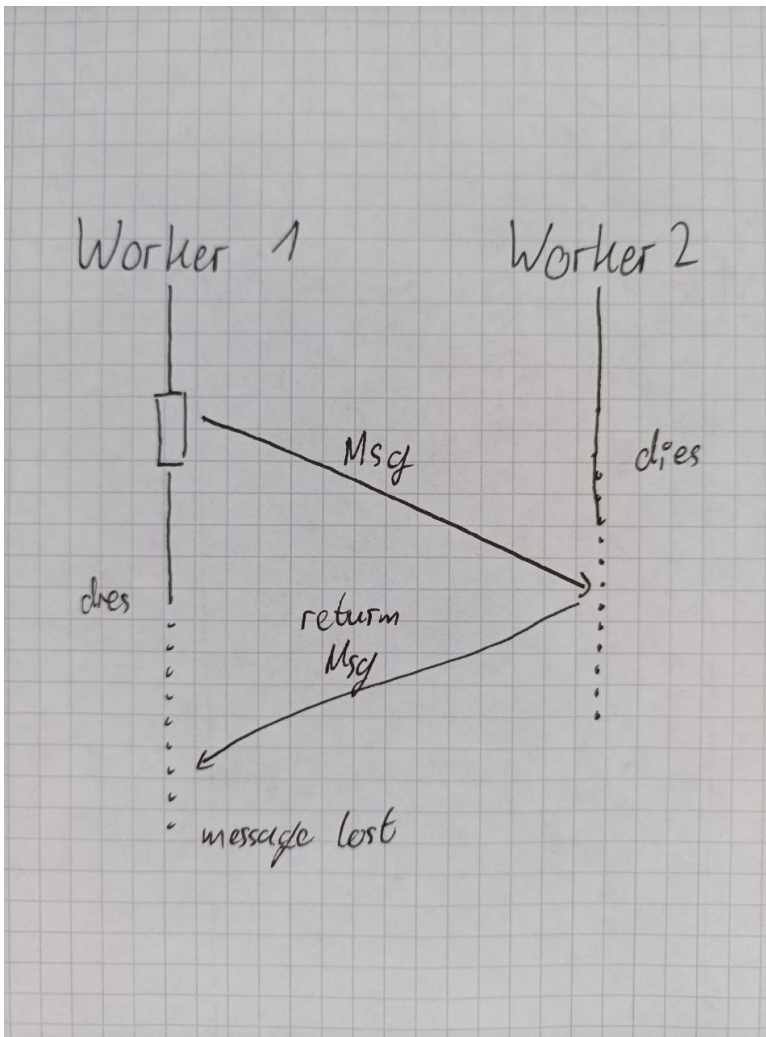 Worker 1
Worker 2
Msg
dies
dies
return
Msg
message lost